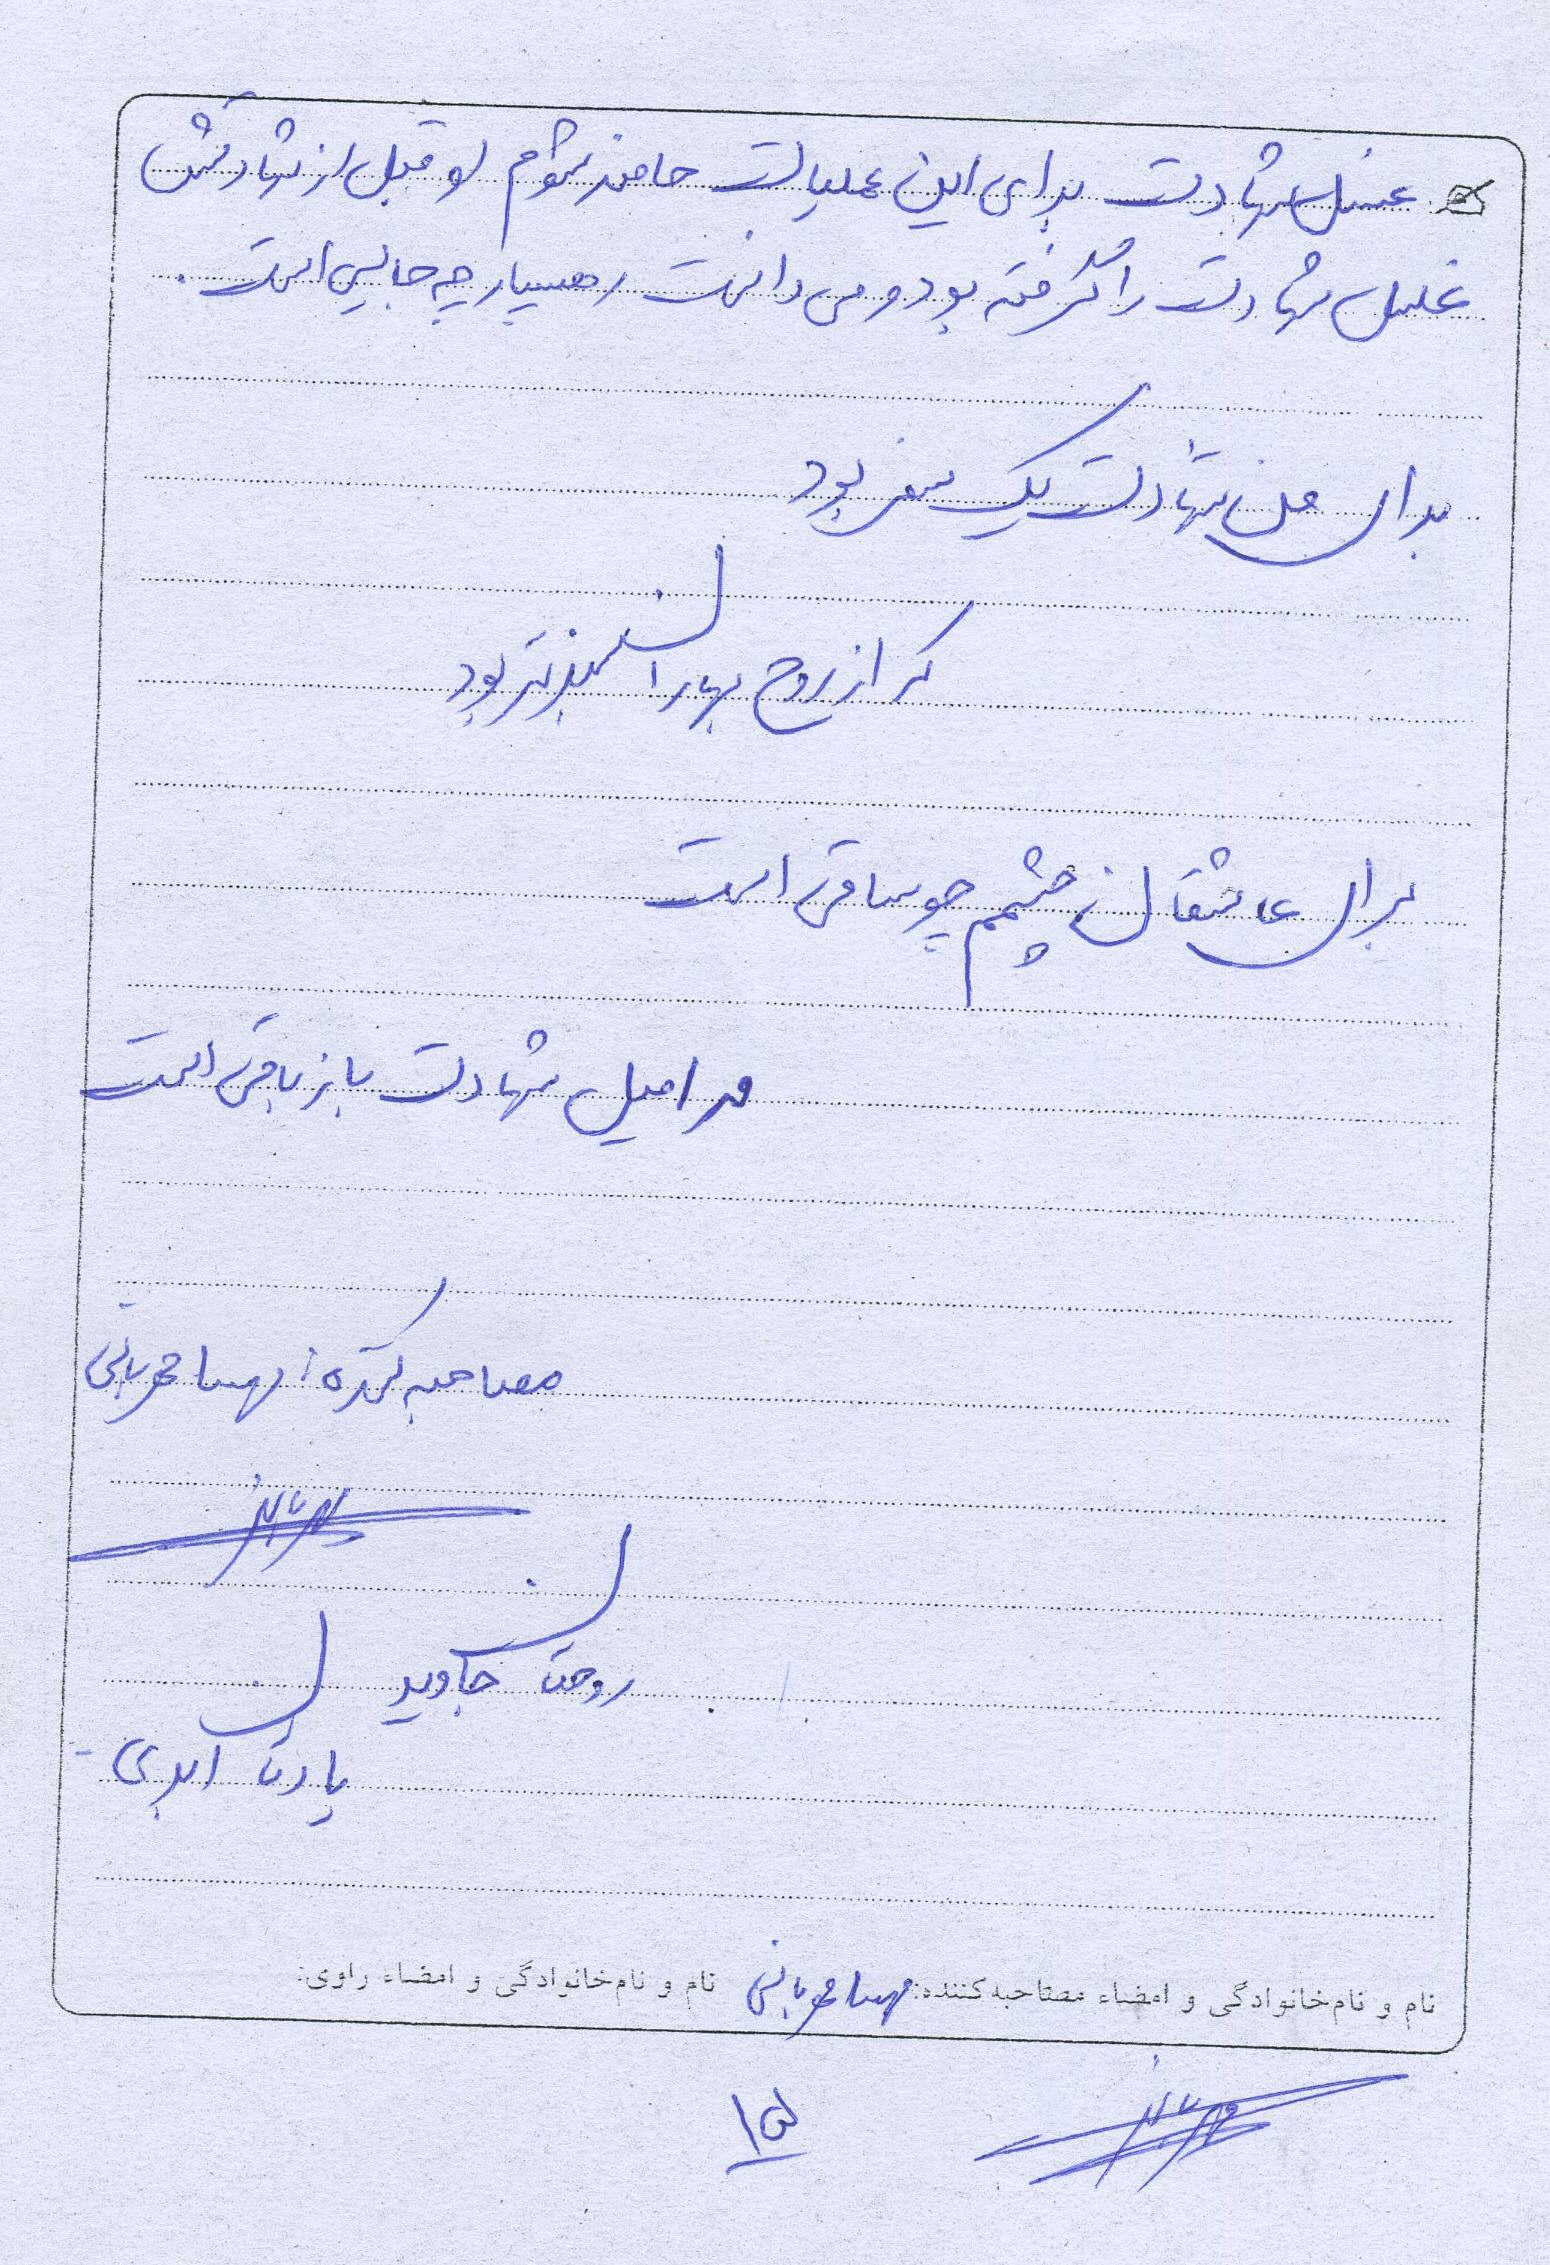 غسل شهادت برای این عملیات حاضر شوم او قبل از شهادتش
غسل شهادت را گرفته بود و می دانست رهسپار چه جایی است.
برای من شهادت یک سفر بود
که از روح بهاران سبزتر بود
برای عاشقان چشمم چو ساقی است
مرا میل شهادت باز باقی است
مصاحبه کننده: مهسا مهربانی
روحتان جاویدان
یادتان ابدی
نام و نام‌خانوادگی و امضاء مصاحبه‌کننده: مهسا مهربانی نام و نام‌خانوادگی و امضاء راوی:
۱۵